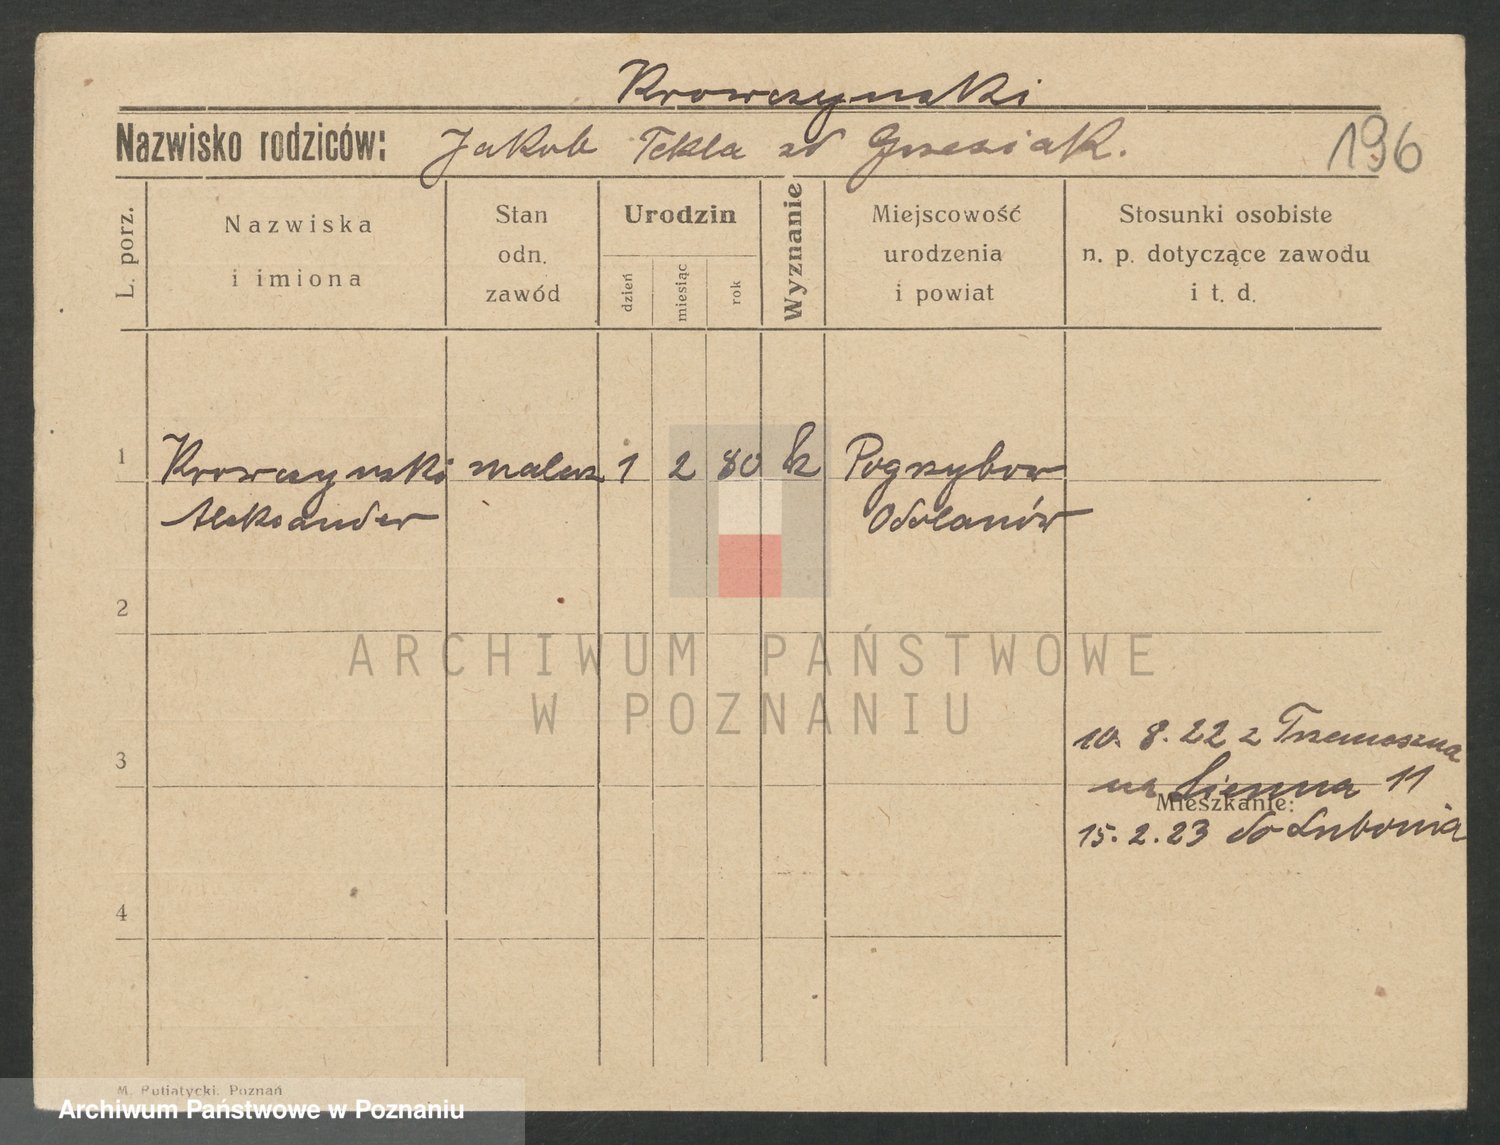 Krowczynski
Nazwisko rodziców: Jakob Tekla zd Grzesiak.
196
L. porz.
Nazwiska
i imiona
Stan
odn.
zawód
Urodzin
dzień
miesiąc
rok
Wyznanie
Miejscowość
urodzenia
i powiat
Stosunki osobiste
n. p. dotyczące zawodu
i t. d.
1 Krowczynski malarz 1 2 80 k Pogrzybow
Aleksander Odolanów
2
ARCHIWUM PAŃSTWOWE
W POZNANIU
10. 8. 22 z
3
na Sienna 11
Mieszkanie:
15. 2. 23 do Lubonia
4
M. Putiatycki, Poznań
Archiwum Państwowe w Poznaniu